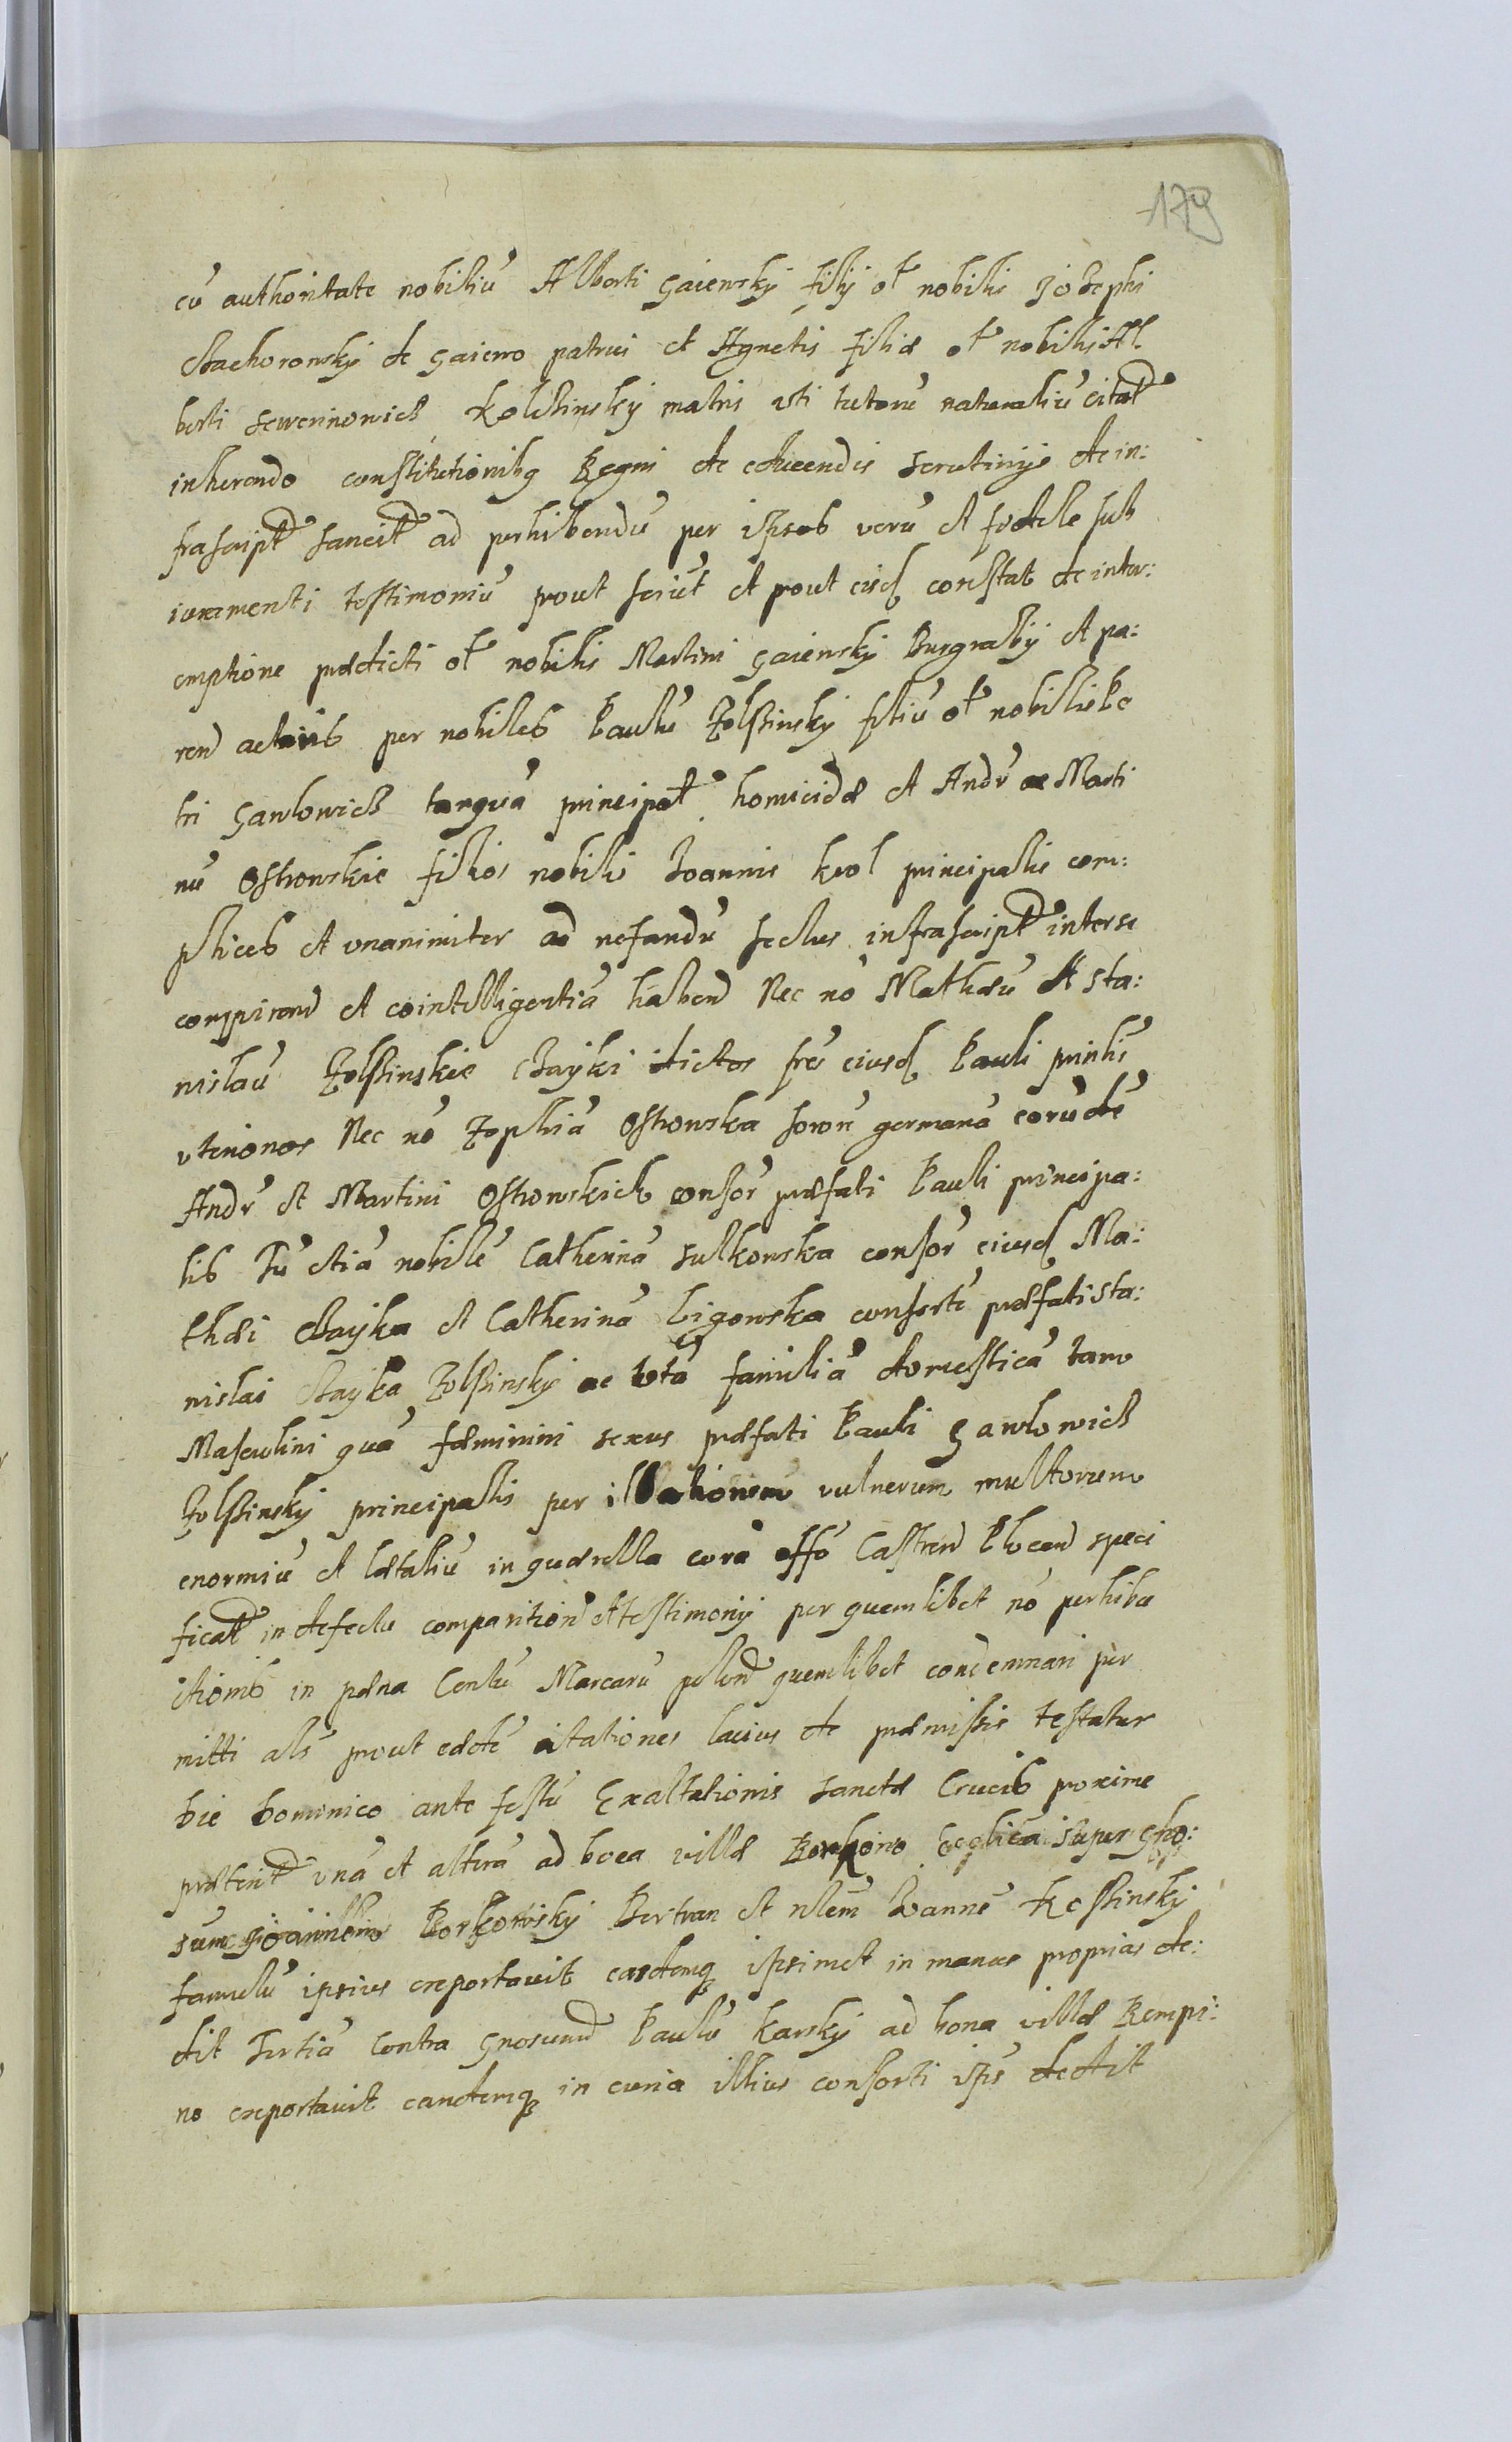 179
cū authoritate nobiliū Alberti Gaiewsky filij oł nobilis Jozephi
Stachorowsky de Gaiewo patrui et Agnetis filiæ oł nobilis Al
berti Sewerinowicz Kolczinsky matris vti tutorū naturaliū citał
inherendo constitutionibq Regni de educendis scrutinijs de in:
frascript sancit ad perhibendū per ipsos verū et fidele sub
iuramenti testimoniū prout sciūt et prout eisd constat de inter:
emptione prædicti oł nobilis Martini Gaiewsky Burgrabij et pa:
ren actoris per nobiles Paulū Zolcinsky filiū oł nobilis Pe
tri Gawlowicz tanquā principał homicidæ et Andr ac Marti
nū Ostrowskie filios nobilis Joannis Krol principalis com:
plices et vnanimiter ad nefandū scelus infrascript inter se
conspirand et cointelligentiā habend Nec nō Mathæū et Sta:
nislaū Zolcinskie Czayki dictos frēs eiusd Pauli prinlis
vterinos Nec nō Zophiā Ostrowska sorore germanā eorūdē
Andr et Martini Ostrowskich consor præfati Pauli principa:
lis Tū etiā nobilē Catherinā Sulkowska consor eiusd Ma:
thæi Czayka et Catherinā Ligowska consortē præfati Sta:
nislai Czayka Zolcinsky ac totā familiā domesticā tam
Masculini quā fæminini sexus præfati Pauli Gawlowicz
Zolcinsky principalis per illationem vulnerum multorum
enormiū et lætaliū in quærella corā offō Castren Plocen speci
ficat in defectu comparition et testimonij per quemlibet nō perhibi
tionis in pæna Centū Marcarū polon quemlibet condemnari per
mitti als prout eædē citationes lacius de præmissis testatur
Die Dominico ante festū Exaltationis Sanctæ Crucis proxime
præterit vnā et alterā ad bona villæ Borkowo super Gño:
sum Joannem Borkowsky Bertran et nlem Joannē Kossinsky
famulū ipsius exportauit easdemq ipsimet in manus proprias de:
dit Tertiā Contra Gnosum Paulū Karsky ad bona villæ Rempi:
no exportauit eandemq in curia illius consorti ipis dedit